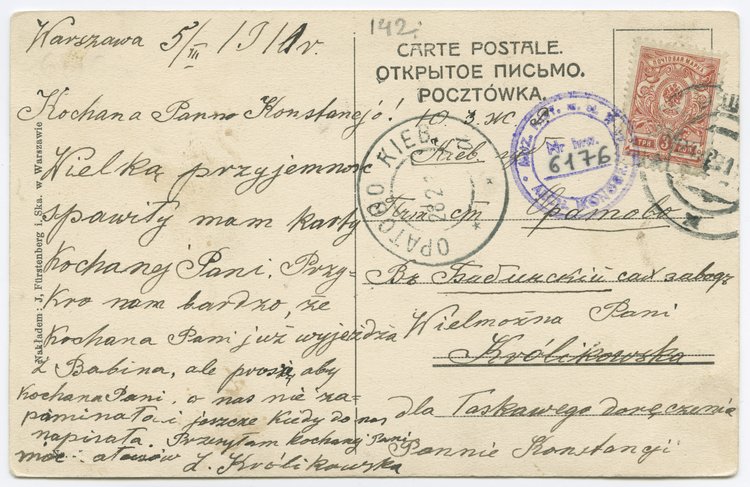 Warszawa 5/III 1911 r.
Kochana Panno Konstancjo!
Wielką przyjemność
spawiły mam karty
Kochanej Pani. Przy-
kro nam bardzo, że
kochana Pani już wyjeżdża
z Babina, ale proszę, aby
kochana Pani o nas nie za-
pominała i jeszcze kiedy do nas
napisała. Przesyłam kochanej Pani
moc całusów Z. Królikowska
Nakładem: J. Fürstenberg i Ska. w Warszawie
142
CARTE POSTALE.
ОТКРЫТОЕ ПИСЬМО.
POCZTÓWKA.
Ю. З. Ж
Кіев. губ
ст Оратово
Въ Бабинскій сах заводъ
Wielmożna Pani
Królikowska
dla Łaskawego doręczenia
Pannie Konstancji
ОРАТОВО КІЕВ.
28 2
Nr inw.
6176
ПОЧТОВАЯ МАРКА
3
ТРИ